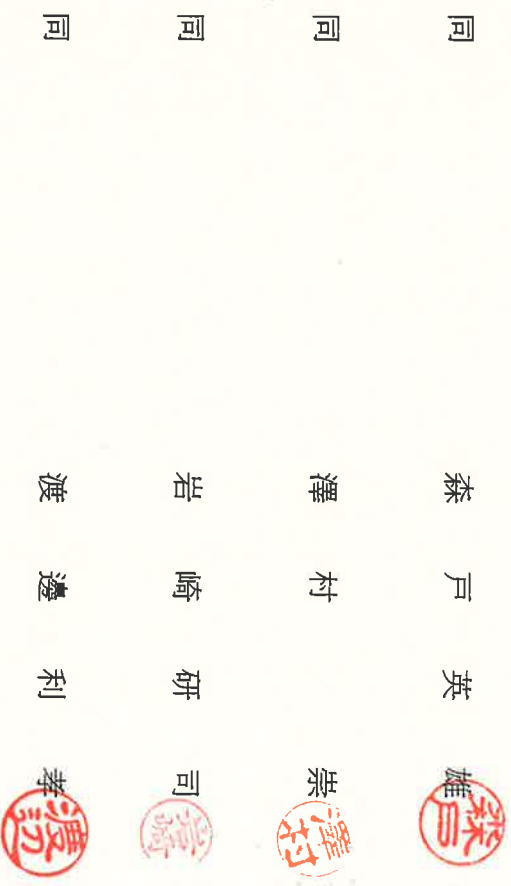 同 森戸英雄 森戸
同 澤村崇 澤村
同 岩崎研司 岩崎
同 渡邊利孝